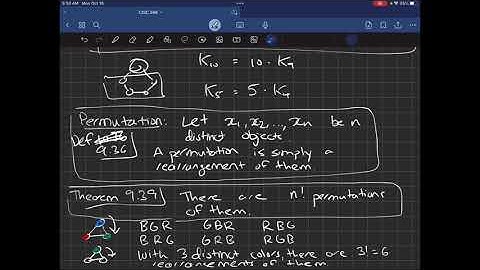 9:50 AM Mon Oct 16
85%
K₁₀ = 10 · K₉
K₅ = 5 · K₄
Permutation: Let x₁, x₂, ..., xₙ be n
distinct objects
Def 9.36
A permutation is simply a
rearrangement of them.
Theorem 9.39 There are n! permutations
of them.
BGR GBR RBG
BRG GRB RGB
with 3 distinct colors, there are 3! = 6
rearrangements of them.